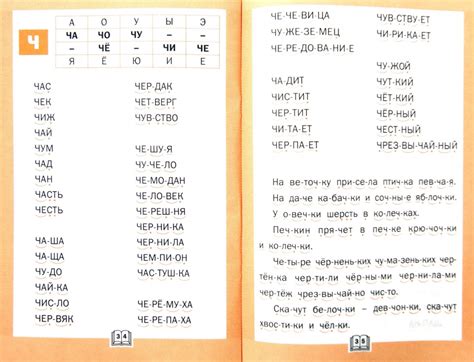 Ч
А О У Ы Э
ЧА ЧО ЧУ – –
– ЧЁ – ЧИ ЧЕ
Я Ё Ю И Е
ЧАС
ЧЕК
ЧИЖ
ЧАЙ
ЧУМ
ЧАД
ЧАН
ЧАСТЬ
ЧЕСТЬ
ЧА-ША
ЧА-ЩА
ЧУ-ДО
ЧАЙ-КА
ЧИС-ЛО
ЧЕР-ВЯК
ЧЕР-ДАК
ЧЕТ-ВЕРГ
ЧУВ-СТВО
ЧЕ-ШУ-Я
ЧУ-ЧЕ-ЛО
ЧЕ-МО-ДАН
ЧЕ-ЛО-ВЕК
ЧЕ-РЕШ-НЯ
ЧЕР-НИ-КА
ЧЕР-НИ-ЛА
ЧЕМ-ПИ-ОН
ЧАС-ТУШ-КА
ЧЕ-РЁ-МУ-ХА
ЧЕ-РЕ-ПА-ХА
34
ЧЕ-ЧЕ-ВИ-ЦА
ЧУ-ЖЕ-ЗЕ-МЕЦ
ЧЕ-РЕ-ДО-ВА-НИ-Е
ЧА-ДИТ
ЧИС-ТИТ
ЧЕР-ТИТ
ЧИ-ТА-ЕТ
ЧЕР-ПА-ЕТ
ЧУВ-СТВУ-ЕТ
ЧИ-РИ-КА-ЕТ
ЧУ-ЖОЙ
ЧУТ-КИЙ
ЧЁТ-КИЙ
ЧЁР-НЫЙ
ЧЕСТ-НЫЙ
ЧРЕЗ-ВЫ-ЧАЙ-НЫЙ
На ве-точ-ку при-се-ла птич-ка пев-ча-я.
На да-че ка-бач-ки и соч-ны-е яб-ло-ки.
У о-веч-ки шерсть в ко-леч-ках.
Печ-кин пря-чет в печ-ке крю-чоч-ки
и ко-леч-ки.
Че-ты-ре чёр-нень-ких чу-ма-зень-ких чер-
тён-ка чер-ти-ли чёр-ны-ми чер-ни-ла-ми
чер-тёж чрез-вы-чай-но чис-то.
Ска-чут бе-лоч-ки – дев-чон-ки, ска-чут
хвос-ти-ки и чёл-ки.